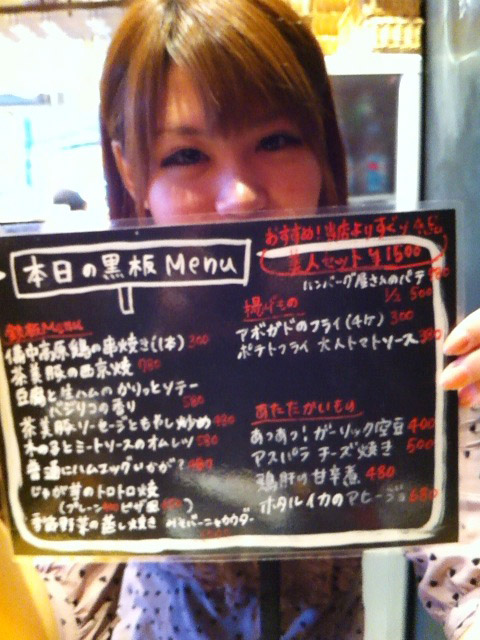 本日の黒板Menu
おすすめ!当店より
美人セット ¥1500
ハンバーグ屋さんのパテ
1/2 500
揚げもの
アボガドのフライ(4ケ) 300
ポテトフライ 大人トマトソース 380
鉄板Menu
備中高原鶏の串焼き(1本) 300
茶美豚の西京焼 780
豆腐と生ハムのかりっとソテー
バジリコの香り 580
茶美豚ソーセージともやし炒め 480
とミートソースのオムレツ 580
普通にハムエッグいかが?
じゃが芋のトロトロ焼
(プレーン ピザ風 )
野菜の蒸し焼き みそバーニャカウダー
あたたかいもの
あつあつ!ガーリック空豆 400
アスパラチーズ焼き 500
鶏肝の甘辛煮 480
ホタルイカのアヒージョ 680